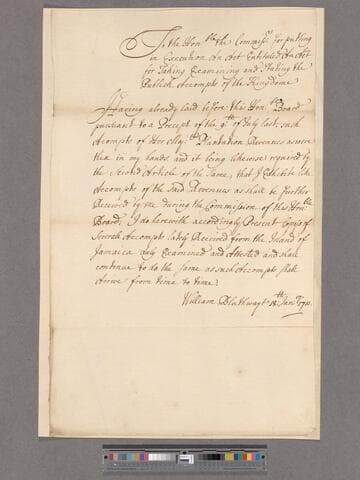 To the Hon:ble the Comiss:rs for putting
in Execution An Act Entituled An Act
for Taking Examining and Stating the
Publick Accompts of the Kingdome
Having already laid before this Hon:ble Board
pursuant to a Precept of the 9th of July last, such
Accompts of Her Maj:ts Plantation Revenues as were
then in my hands and it being likewise required by
the Second Article of the Same, that I Exhibite like
Accompts of the Said Revenues as shall be further
Received by me during the Commission of this Hon:ble
Board; I do herewith accordingly Present Copys of
Severall Accompts lately Received from the Island of
Jamaica duly Examined and Attested and shall
continue to do the same as such Accompts shall
Arrive from time to time.
William Blathwayt 18th Jan:ry 1711